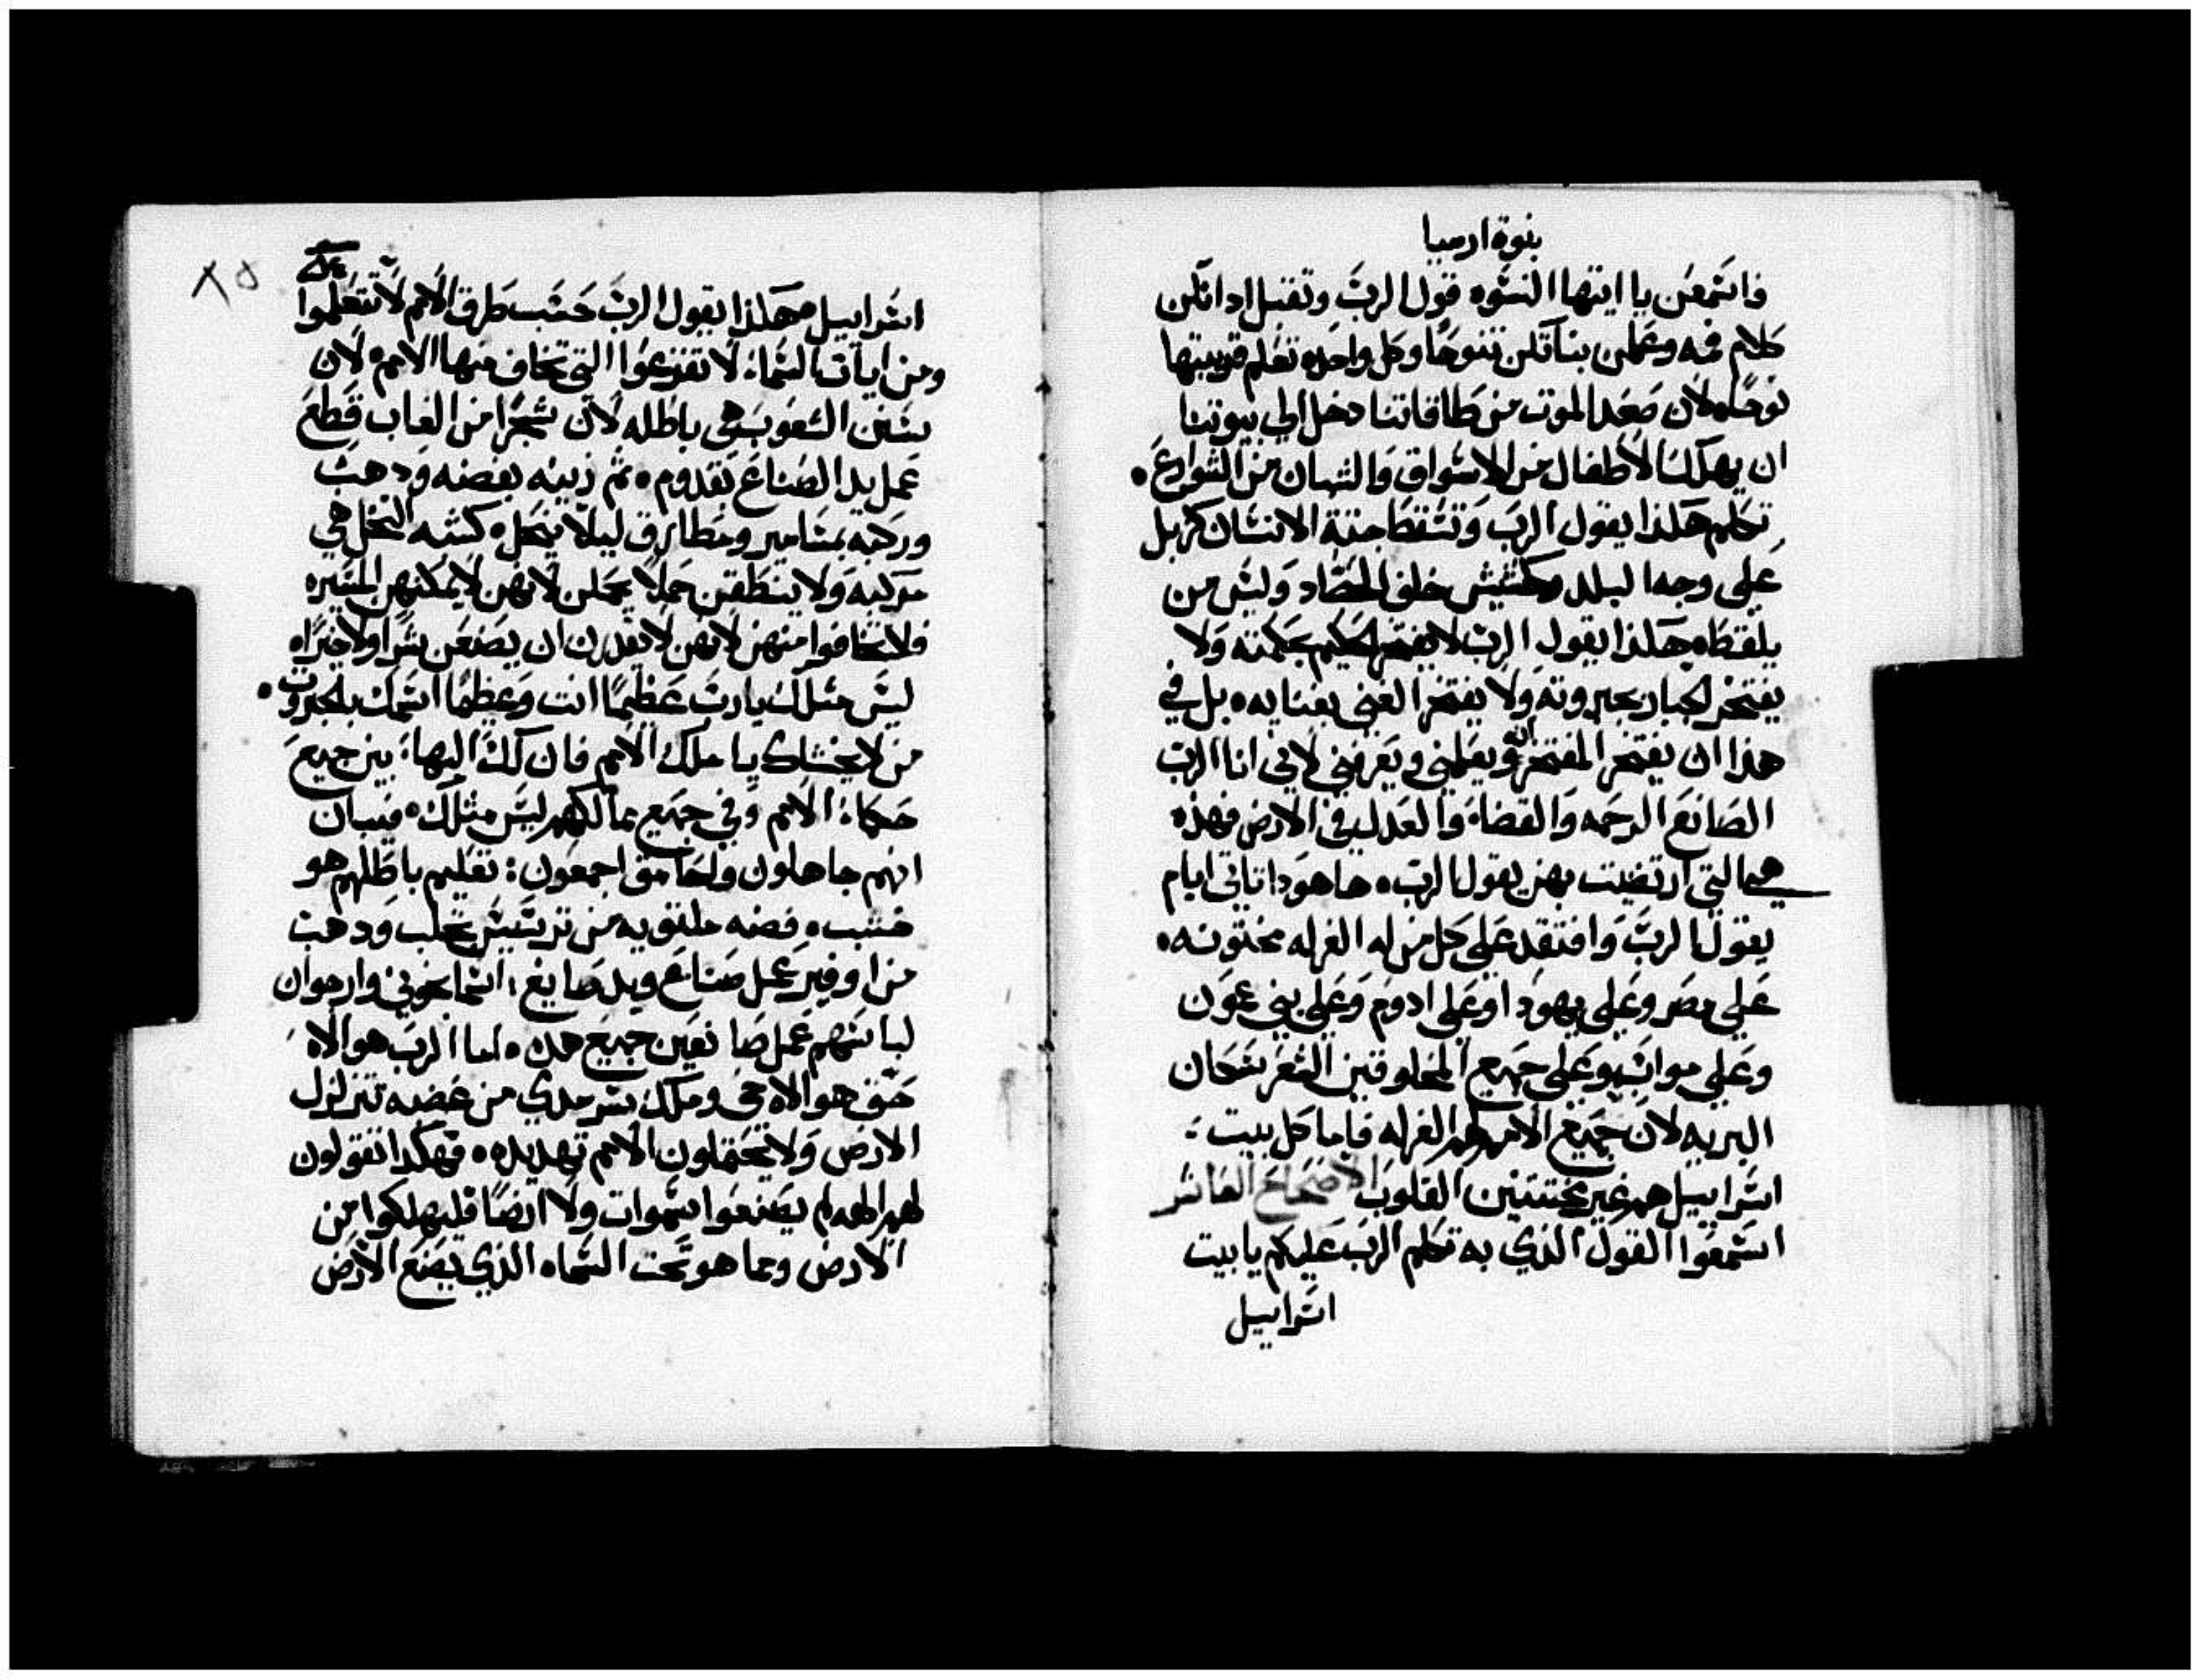 بنوة ارميا
فاسمعن يا ايتها النسوه قول الرب وتقتبل ادانكن
كلام فمه وعلمن بناتكن تنوحا وكل واحده تعلم قريبتها
نوحا ٥ لان صعد الموت من طاقاتنا دخل الي بيوتنا
ان يهلك الاطفال من الاسواق والشبان من الشوارع ٠
تكلم هكذا يقول الرب وتسقط جتة الانسان كزبل
علي وجه البلد وكحشيش خلف الحصاد وليس من
يلقطه ٥ هكذا يقول الرب لا يفتخر الحكيم بحكمته ولا
يفتخر الجبار بجبروته ولا يفتخر الغني بغنايه ٥ بل في
هذا ان يفتخر المفتخر انه يعلمني ويعرفني لاني انا الرب
الصانع الرحمه والقضاء والعدل في الارض فهذه
هي التي ارتضيت بهن يقول الرب ٥ ها هودا تاتي ايام
يقول الرب وافتقد علي كل من له الغرله مختونه ٥
علي مصر وعلي يهودا وعلي ادوم وعلي بني عمون
وعلي مواب وعلي جميع المحلوقين الشعر سكان
البريه لان جميع الامم لهم الغرله فاما كل بيت
اسراييل هم غير مختتنين القلوب الاصحاح العاشر
اسمعوا القول الذي به تكلم الرب عليكم يا بيت
اسراييل
٨٥
اسراييل هكذا يقول الرب حسب طرق الامم لا تتعلموا
ومن ايات السماء لا تفزعوا التي تخاف منها الامم ٥ لان
سنن الشعوب هي باطله لان شجرا من الغاب قطع
عمل يد الصناع بقدوم ٥ ثم زينه بفضه ودهب
وركبه بمسامير ومطارق ليلا ينحل ٥ كشبه النخل هي
مركبه ولا ينطقن حملا يحملن لانهن لا يمكنهن المسير ٥
فلا تخافوا منهن لانهن لا يقدرن ان يصنعن شرا ولا خيرا ٥
ليس مثلك يارب عظيما انت وعظيما اسمك بالجبروت ٠
من لا يخشاك يا ملك الامم فان لك البها بين جميع
حكماء الامم وفي جميع ممالكهم ليس مثلك ٥ فيبان
انهم جاهلون واحامق اجمعون : تعليم باطلهم هو
خشب ٥ فضه ملتويه من ترشيش تجلب ودهب
من اوفير عمل صناع ويد صايغ : اسمانجوني وارجوان
لباسهم عمل صانعين جميع هده ٥ اما الرب هو الاه
حق هو الاه حي وملك سرمدي من غضبه تتزلزل
الارض ولا يحتملون الامم تهديده ٥ فهكدا تقولون
لهم الهه لم يصنعوا السموات ولا ارضا فليهلكوا من
الارض ومما هو تحت السماء ٥ الذي يصنع الارض